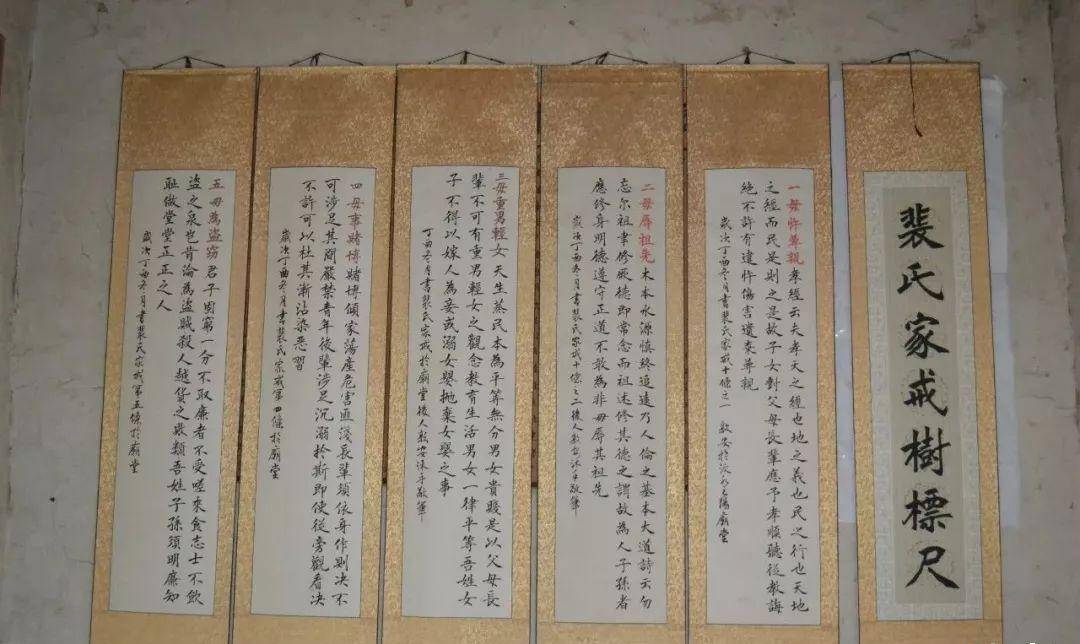 裴氏家戒樹標尺
一毋忤其親孝經云夫孝天之經也地之義也民之行也天地
之經而民是則之是故子女對父母長輩應予孝順聽從教誨
絕不許有違忤傷害遺棄其親
歲次丁酉冬月書裴氏家戒十條之一
二毋辱祖先木本水源慎終追遠乃人倫之基本大道詩云勿
忘尔祖聿修厥德即常念而祖述修其德之謂故為人子孫者
應修身明德遵守正道不敢為非毋辱其祖先
歲次丁酉冬月書裴氏家戒十條之二後人敬安沐手敬筆
三毋重男輕女天生蒸民本為平等無分男女貴賤是以父母長
輩不可有重男輕女之觀念教育生活男女一律平等吾姓女
子不得以嫁人為妾或溺女嬰拋棄女嬰之事
丁酉冬月書裴氏家戒於廟堂後人敬安沐手敬筆
四毋事賭博賭博傾家蕩產危害匪淺長輩須依身作則決不
可涉足其間嚴禁青年後輩涉足沉溺於斯即使從旁觀看决
不許可以杜其漸沾染惡習
歲次丁酉冬月書裴氏家戒第四條於廟堂
五毋為盜竊君子固窮一分不取廉者不受嗟來食志士不飲
盜之泉也肯淪為盜賊殺人越貨之敗類吾姓子孫須明廉知
耻做堂堂正正之人
歲次丁酉冬月書裴氏家戒第五條於廟堂